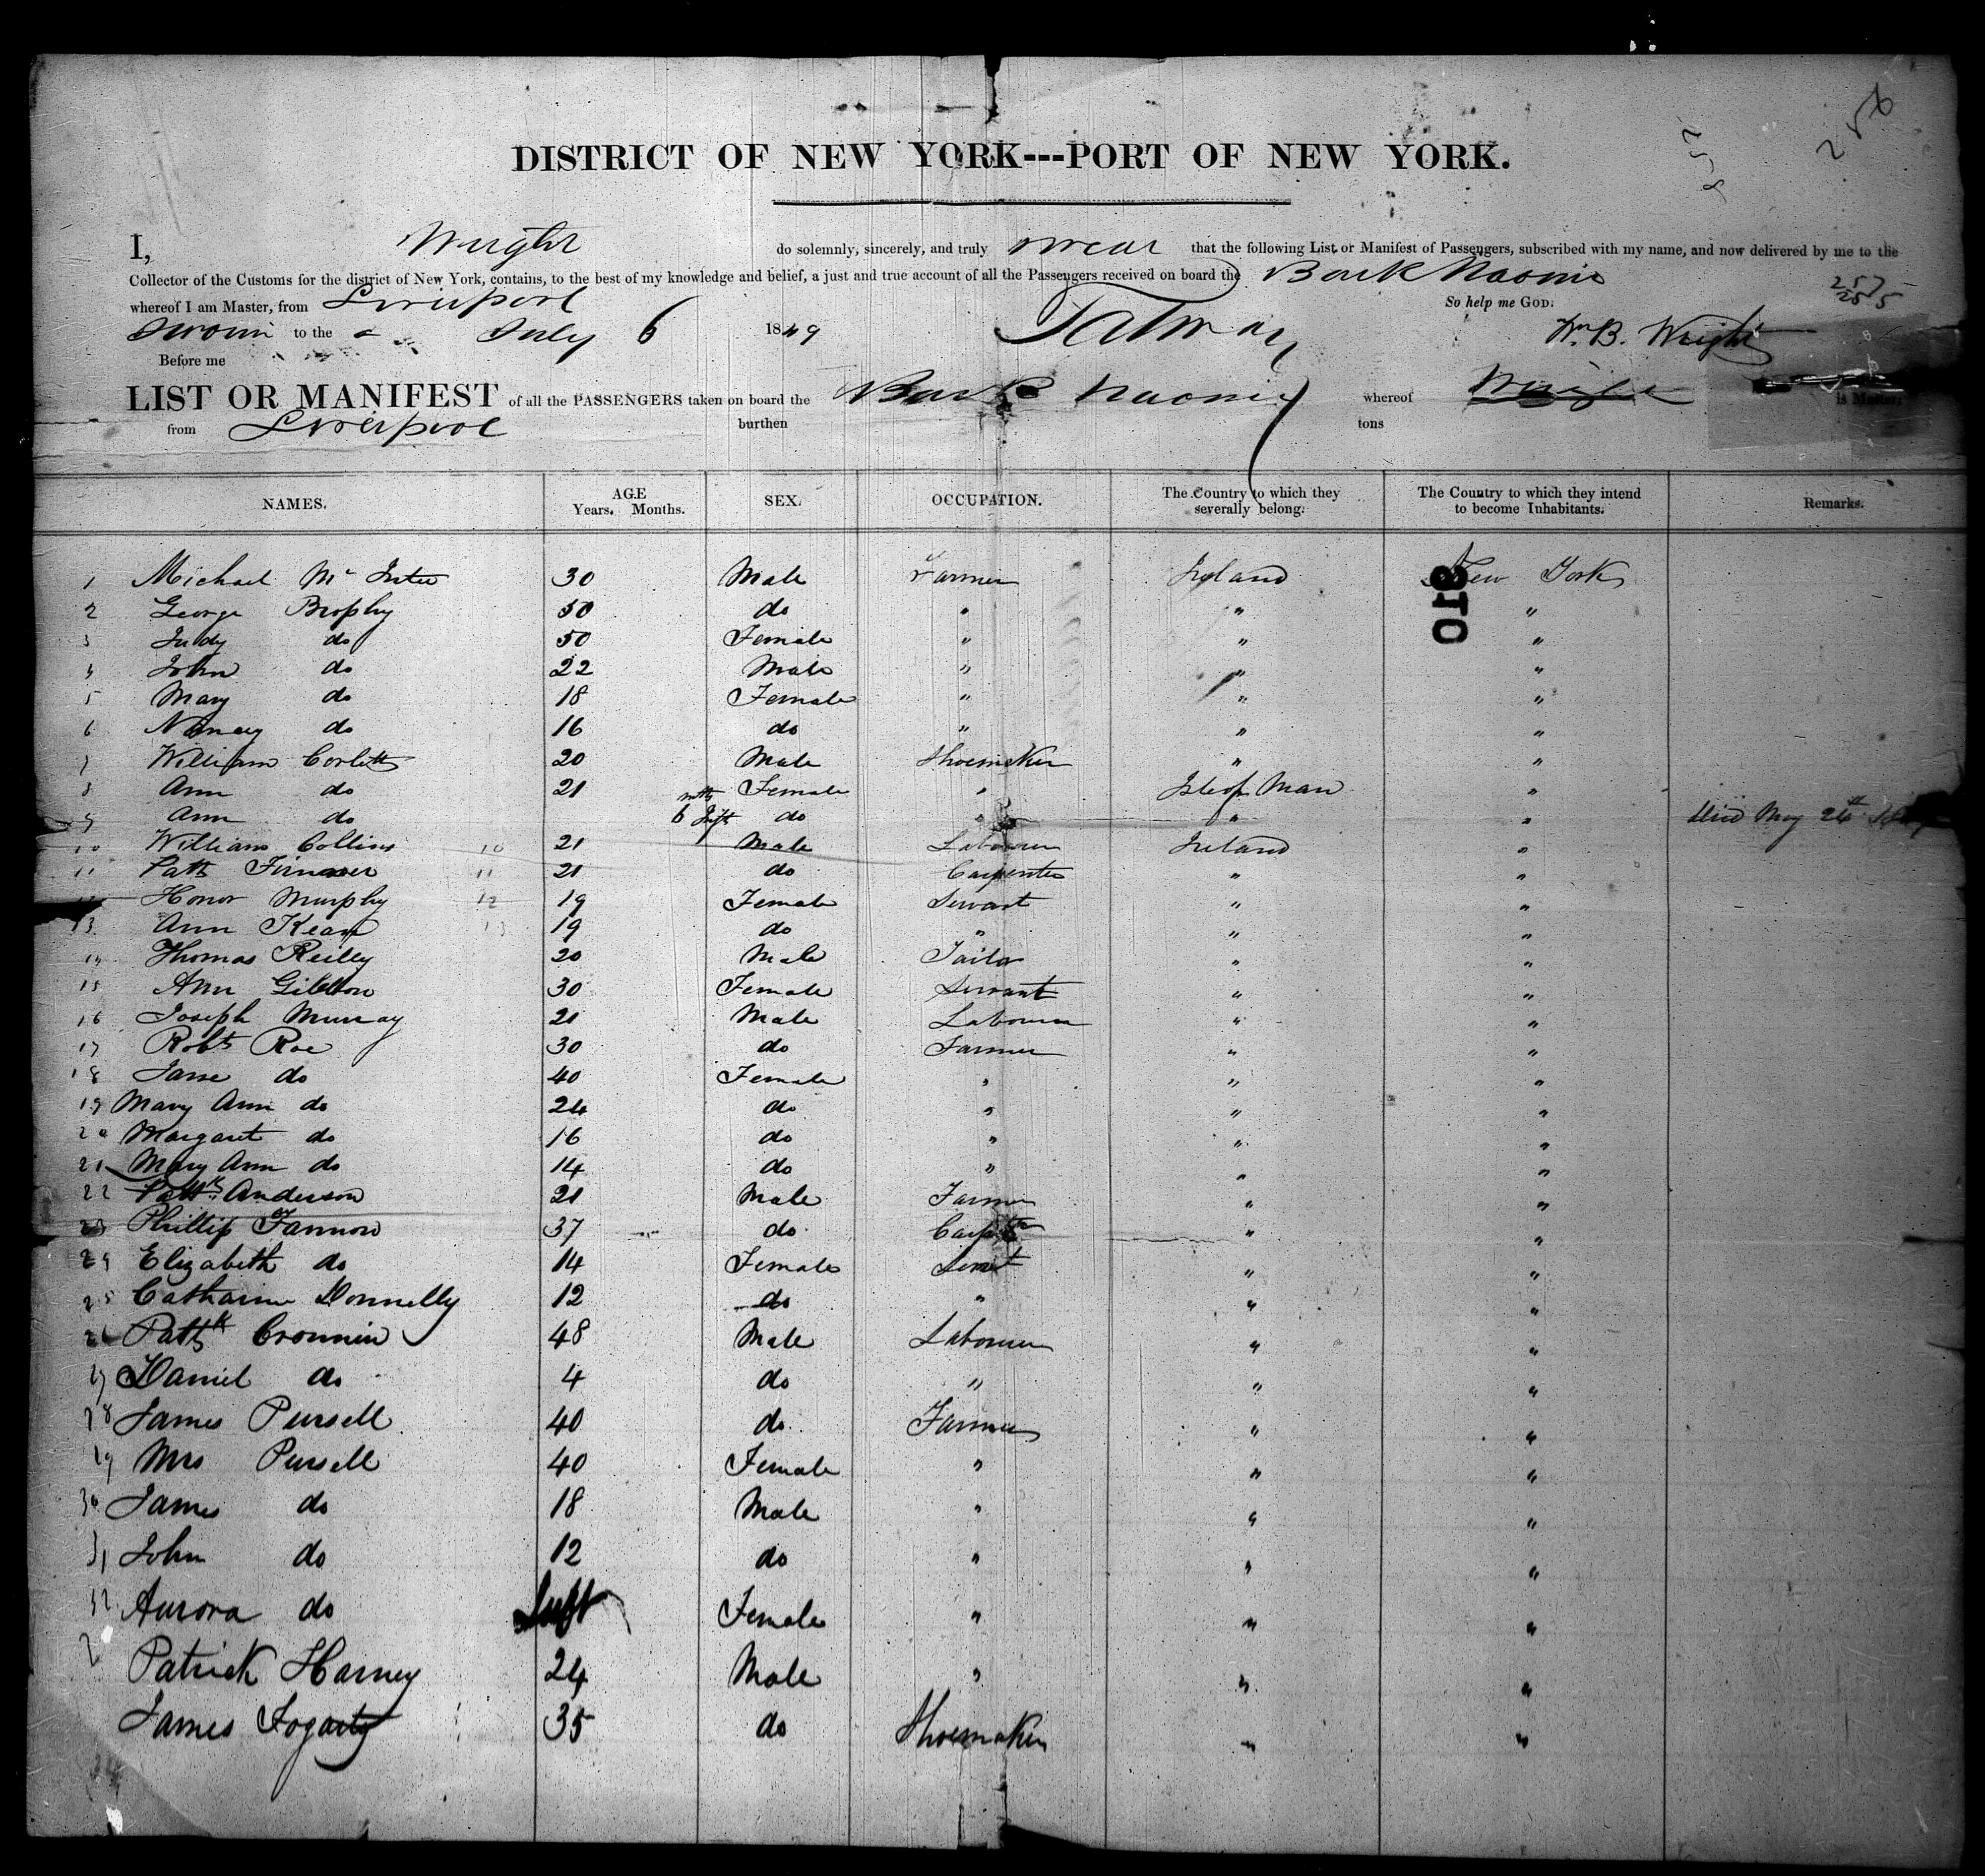 258
257
DISTRICT OF NEW YORK---PORT OF NEW YORK.
I, Wright do solemnly, sincerely, and truly swear that the following List or Manifest of Passengers, subscribed with my name, and now delivered by me to the
Collector of the Customs for the district of New York, contains, to the best of my knowledge and belief, a just and true account of all the Passengers received on board the Bark Naomie
whereof I am Master, from Liverpool So help me GOD.
Sworn to the July 6 1849 Wm. B. Wright
Before me
LIST OR MANIFEST of all the PASSENGERS taken on board the Bark Naomie whereof Wright is Master,
from Liverpool burthen tons
NAMES. AGE Years. Months. SEX. OCCUPATION. The Country to which they severally belong. The Country to which they intend to become Inhabitants. Remarks.
810
1 Michael Mc 30 Male Farmer Ireland New York
2 George Brophy 50 do " " "
3 Judy do 50 Female " " "
4 John do 22 Male " " "
5 Mary do 18 Female " " "
6 Nancy do 16 do " " "
7 William Corlett 20 Male Shoemaker " "
8 Ann do 21 Female " Isle of Man "
9 Ann do 6 mths Inft do " " " Died May 26th
10 William Collins 10 21 Male Labourer Ireland "
11 Patk 11 21 do Carpenter " "
12 Honor Murphy 12 19 Female Servant " "
13 Ann Kean 13 19 do " " "
14 Thomas Reilly 20 Male Tailor " "
15 Ann Gibbon 30 Female Servant " "
16 Joseph Murray 21 Male Labourer " "
17 Robt Roe 30 do Farmer " "
18 Jane do 40 Female " " "
19 Mary Ann do 24 do " " "
20 Margaret do 16 do " " "
21 Mary Ann do 14 do " " "
22 Pattk Anderson 21 Male Farmer " "
23 Phillip Fannon 37 do Carptr " "
24 Elizabeth do 14 Female Servt " "
25 Catharine Donnelly 12 do " " "
26 Pattk Cronnin 48 Male Labourer " "
27 Daniel do 4 do " " "
28 James Pursell 40 do Farmer " "
29 Mrs Pursell 40 Female " " "
30 James do 18 Male " " "
31 John do 12 do " " "
32 Aurora do Inft Female " " "
Patrick Harney 24 Male " " "
James Fogarty 35 do Shoemaker " "
34